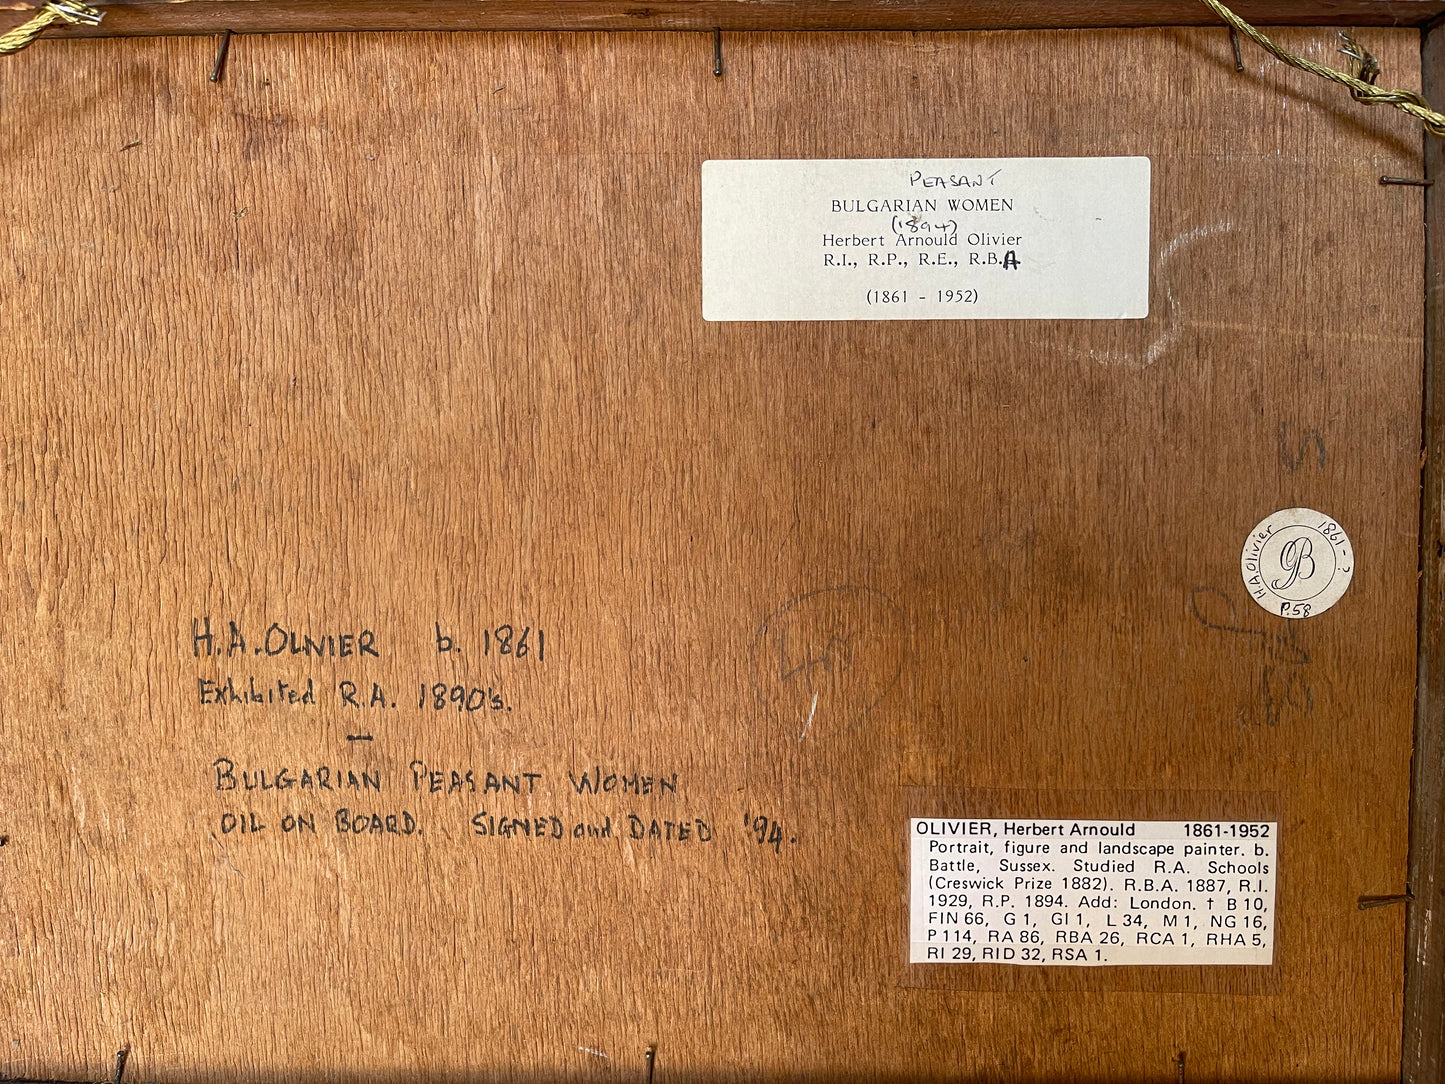 PEASANT
BULGARIAN WOMEN
(1894)
Herbert Arnould Olivier
R.I., R.P., R.E., R.B.A
(1861 - 1952)
H.A.Olivier
1861-
B
P.58
H.A.OLIVIER b. 1861
Exhibited R.A. 1890's.
—
BULGARIAN PEASANT WOMEN
OIL ON BOARD. SIGNED and DATED '94.
OLIVIER, Herbert Arnould 1861-1952
Portrait, figure and landscape painter. b.
Battle, Sussex. Studied R.A. Schools
(Creswick Prize 1882). R.B.A. 1887, R.I.
1929, R.P. 1894. Add: London. † B 10,
FIN 66, G 1, GI 1, L 34, M 1, NG 16,
P 114, RA 86, RBA 26, RCA 1, RHA 5,
RI 29, RID 32, RSA 1.